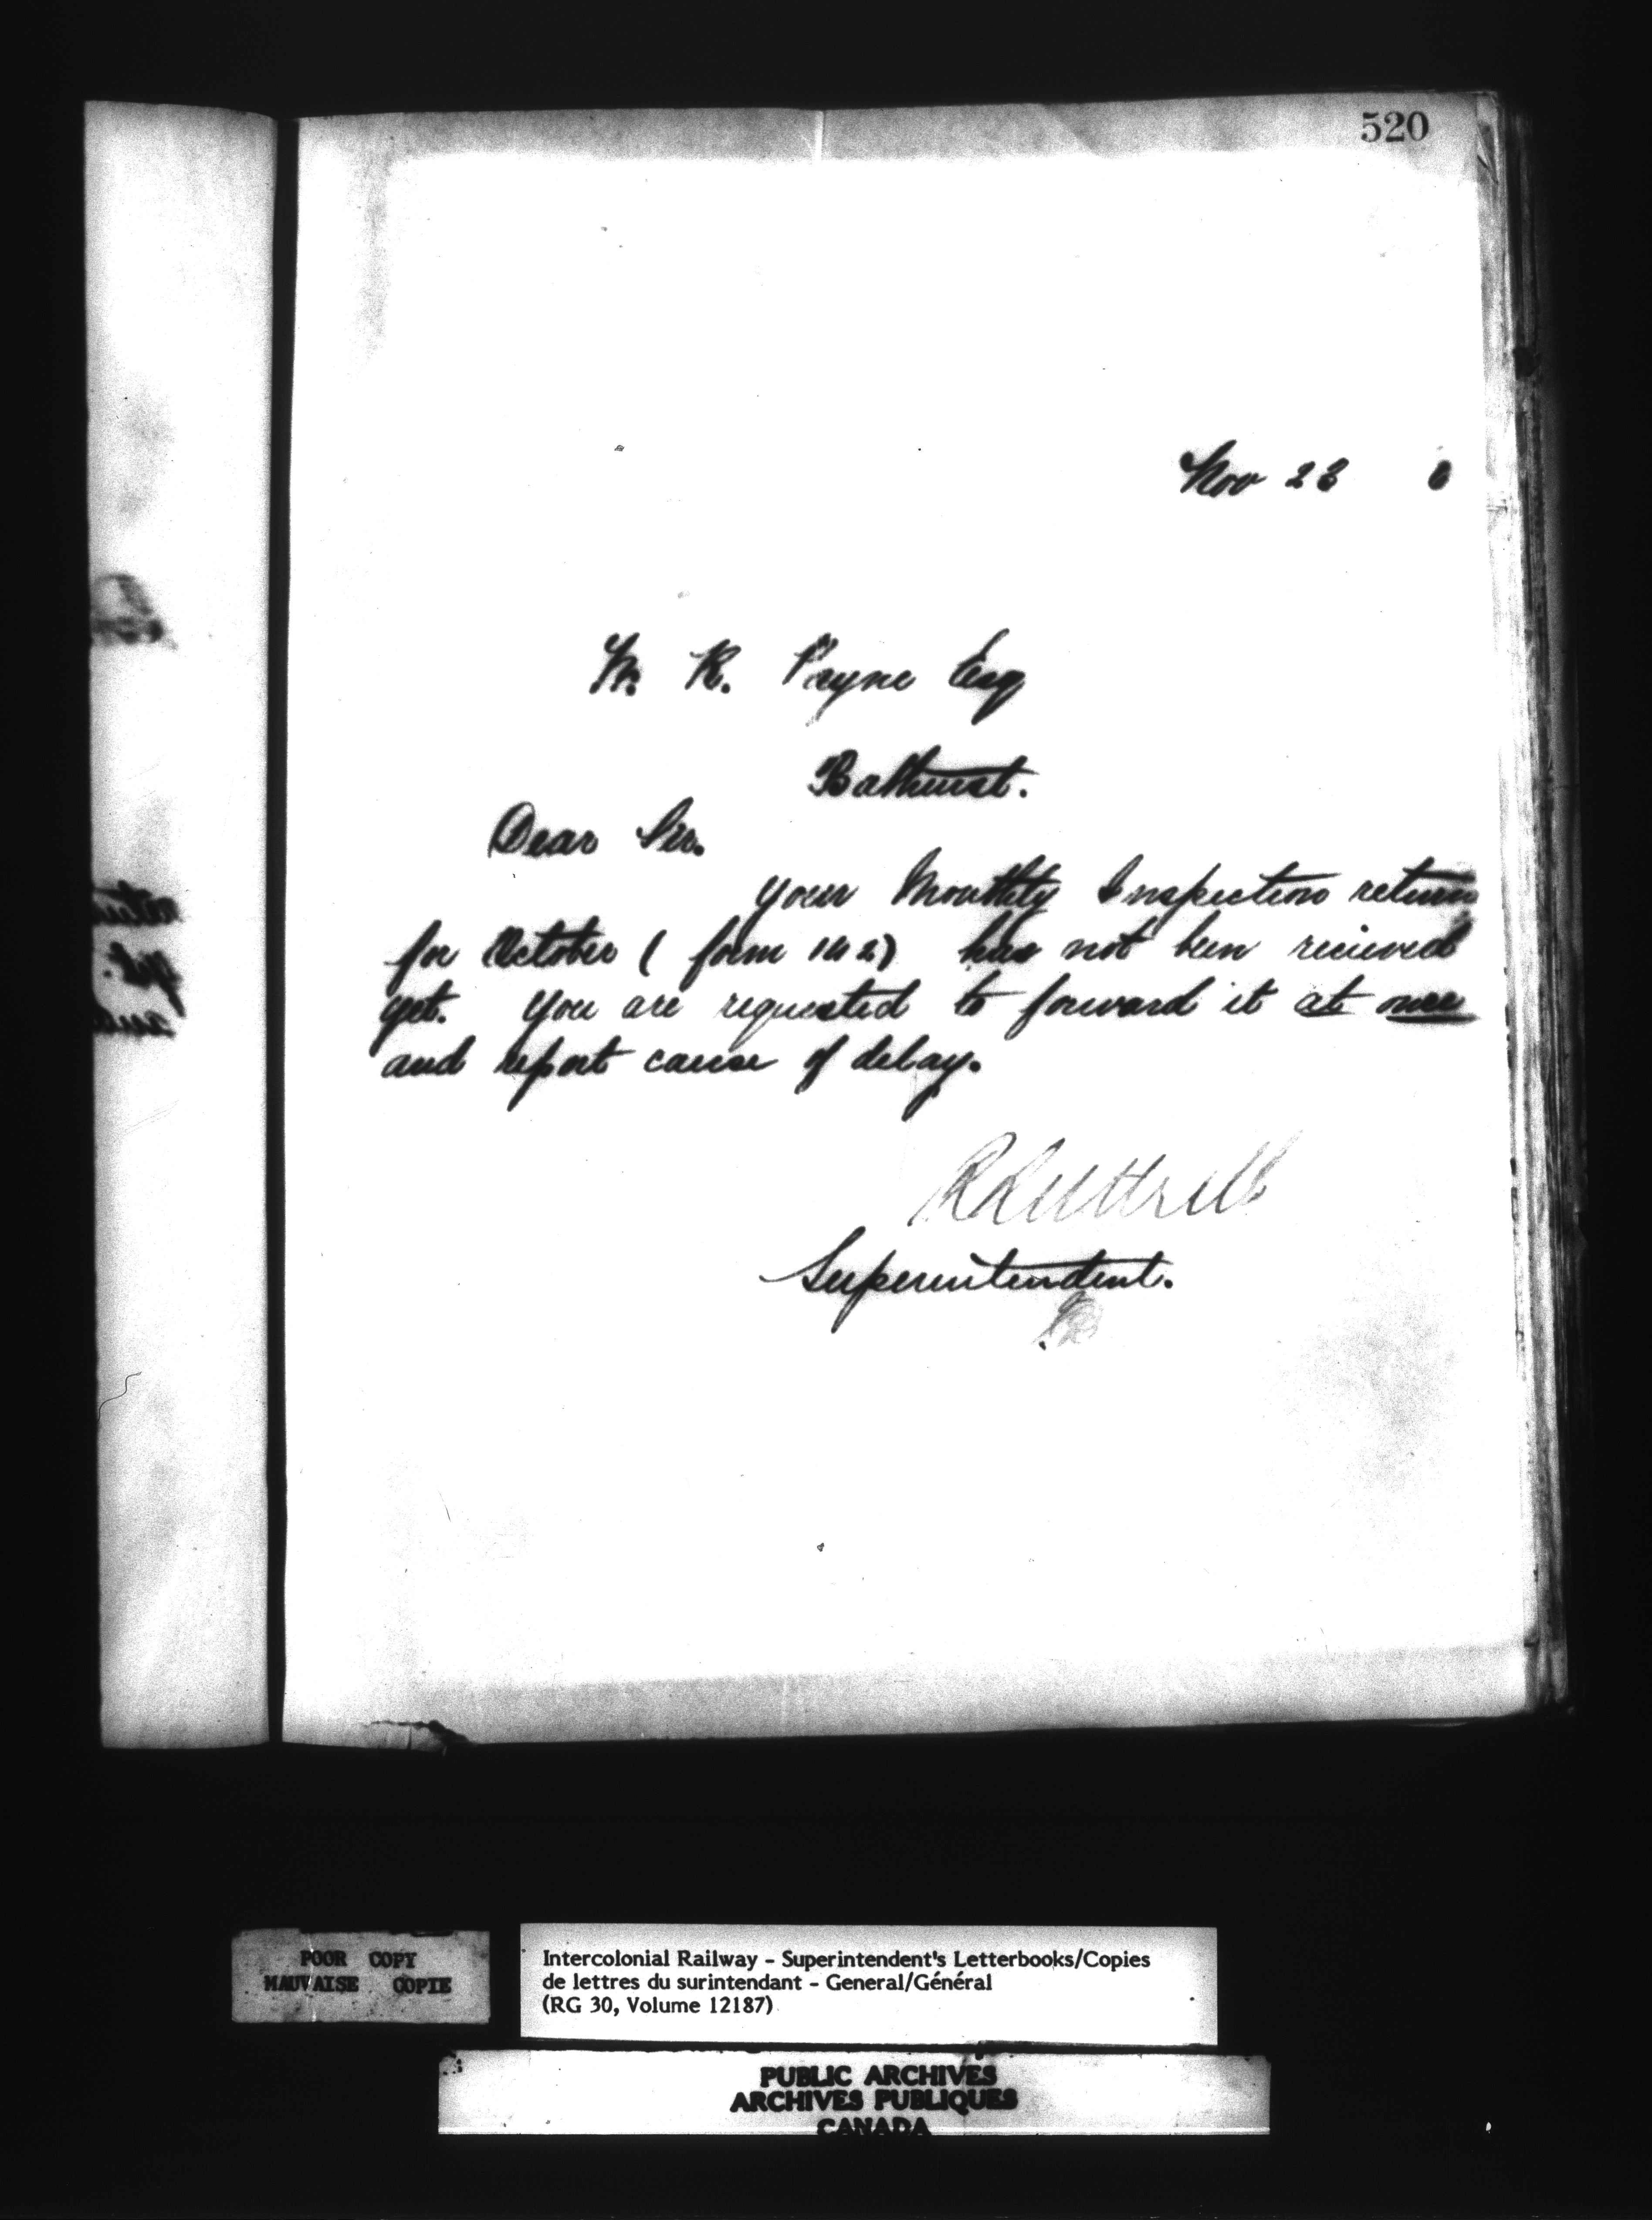 520
Nov 23 0
W. R. Payne Esq
Bathurst.
Dear Sir.
your Monthly Inspection return
for October ( form 142) has not been recieved
yet. You are requested to forward it at once
and report cause of delay.
RLuttrell
Superintendent.
POOR COPY
MAUVAISE COPIE
Intercolonial Railway - Superintendent's Letterbooks/Copies
de lettres du surintendant - General/Général
(RG 30, Volume 12187)
PUBLIC ARCHIVES
ARCHIVES PUBLIQUES
CANADA